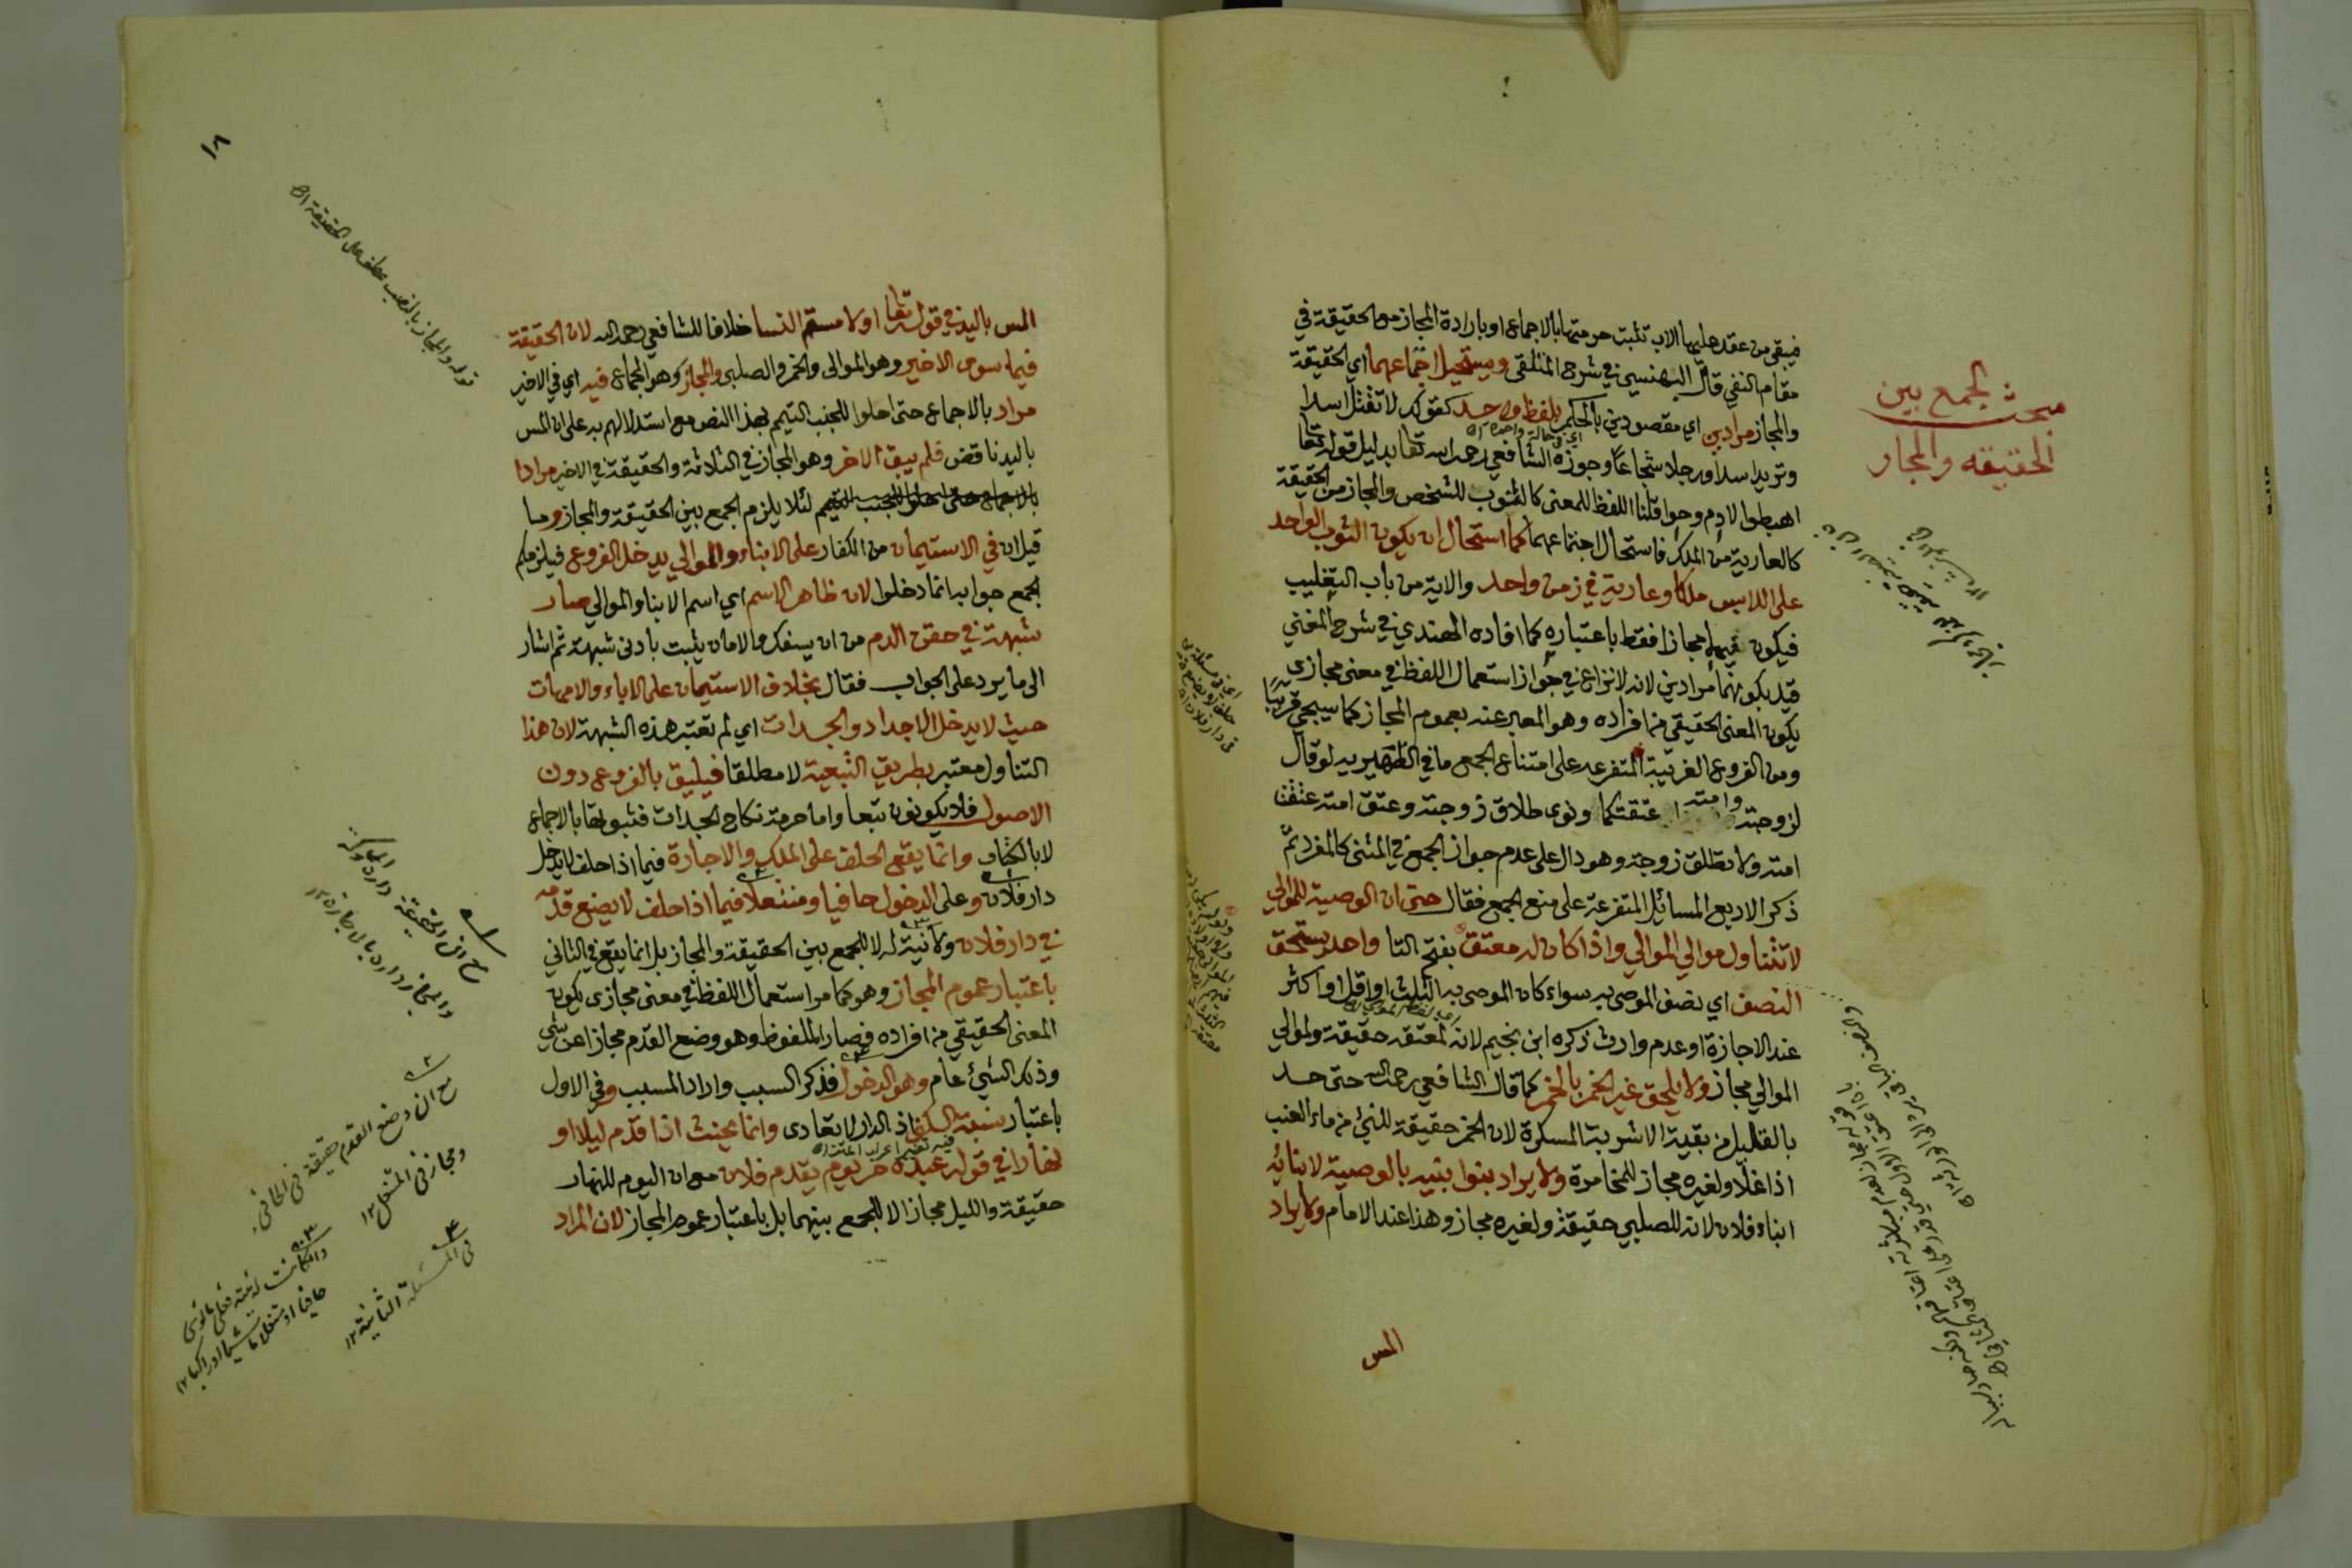 مبحث الجمع بين
الحقيقه والمجاز
فيبقى من عقد عليها الاب تثبت حرمتها بالاجماع او بارادة المجاز مع الحقيقة في
مقام النفي قال البهنسي في شرح الملتقى ويستحيل اجتماعهما اي الحقيقة
والمجاز مرادين اي مقصودين بالحكم بلفظ واحد كقولك لا تقتل اسدا
اي في حالة واحدة
وتريد اسدا ورجلا شجاعا وجوزه الشافعي رحمه الله تعا بدليل قوله تعا
اهبطوا لادم وحوا قلنا اللفظ للمعنى كالثوب للشخص والمجاز من الحقيقة
كالعارية من الملك فاستحال اجتماعهما كما استحال ان يكون الثوب الواحد
على اللابس ملكا وعارية في زمن واحد والاية من باب التغليب
فيكون فيها مجازا فقط باعتباره كما افاده الهندي في شرح المغني
قيد بكونهما مرادين لانه لا نزاع في جواز استعمال اللفظ في معنى مجازى
يكون المعنى الحقيقي من افراده وهو المعبر عنه بعموم المجاز كما سيجي قريبا
ومن الفروع الغريبة المتفرعه على امتناع الجمع ما في الظهيريه لو قال
لزوجته وامته عتقتكما ونوى طلاق زوجته وعتق امته عتقت
امته ولا تطلق زوجته وهو دال على عدم جواز الجمع في المثنى كالمفرد ثم
ذكر الاربع المسائل المتفرعة على منع الجمع فقال حتى ان الوصية للموالي
لا تتناول موالي الموالي واذا كان له معتق بفتح التا واحد يستحق
النصف اي نصف الموصى به سواء كان الموصى به الثلث او اقل او اكثر
عند الاجازة او عدم وارث ذكره ابن نجيم لانه لمعتقه حقيقة ولموالي
الموالي مجاز ولا يلحق غير الخمر بالخمر كما قال الشافعي رحمه الله حتى حد
بالقليل من بقية الاشربة المسكرة لان الخمر حقيقة للنيئ من ماء العنب
اذا غلا ولغيره مجاز للمخامرة ولا يراد بنوا بنيه بالوصية لابنائه
ابناء فلان لانه للصلبي حقيقة ولغيره مجاز وهذا عند الامام ولا يراد
المس
١٨
قوله والمجاز بالنصب عطف على الحقيقة اه
المس باليد في قوله تعا او لا مستم النسا خلافا للشافعي رحمه الله لان الحقيقة
فيما سوى الاخير وهو الموالى والخمر والصلبى والمجاز وهو الجماع فيه اي في الاخير
مراد بالاجماع حتى احلوا للجنب التيمم بهذا النص مع استدلالهم به على ان المس
باليد ناقض فلم يبق الاخر وهو المجاز في الثلاثة والحقيقة في الاخير مرادا
بالاجماع حتى احلوا للجنب التيمم لئلا يلزم الجمع بين الحقيقة والمجاز وما
قيل ان في الاستيمان من الكفار على الابناء والموالي يدخل الفروع فيلزمكم
الجمع جوابه انما دخلوا لان ظاهر الاسم اي اسم الابنا والموالي صار
شبهة في حقن الدم من ان يسفك والامان يثبت بادنى شبهة ثم اشار
الى ما يرد على الجواب فقال بخلاف الاستيمان على الاباء والامهات
حيث لا يدخل الاجداد والجدات اي لم تعتبر هذه الشبهة لان هذا
التناول معتبر بطريق التبعية لا مطلقا فيليق بالفروع دون
الاصول فلا يكونون تبعا واما حرمة نكاح الجدات فثبوتها بالاجماع
لا بالكتاب وانما يقع الحلف على الملك والاجارة فيما اذا حلف لا يدخل
دار فلان وعلى الدخول حافيا ومنتعلا فيما اذا حلف لا يضع قدمه
في دار فلان ولا نية له لا للجمع بين الحقيقة والمجاز بل انما يقع في الثاني
باعتبار عموم المجاز وهو كما مر استعمال اللفظ في معنى مجازى يكون
المعنى الحقيقي من افراده فصار الملفوظ وهو وضع القدم مجازا عن شي
وذلك الشيئ عام وهو الدخول فذكر السبب واراد المسبب وفي الاول
باعتبار نسبة السكنى اذ الدار لا تعادى وانما يحنث اذا قدم ليلا او
نهارا في قوله عبده حر يوم يقدم فلان مع ان اليوم للنهار
حقيقة والليل مجاز الا للجمع بينهما بل باعتبار عموم المجاز لان المراد
مع ان وضع القدم حقيقة في الحافي
ومجاز في المتنعل ١٢
في المسئلة الثانية ١٢